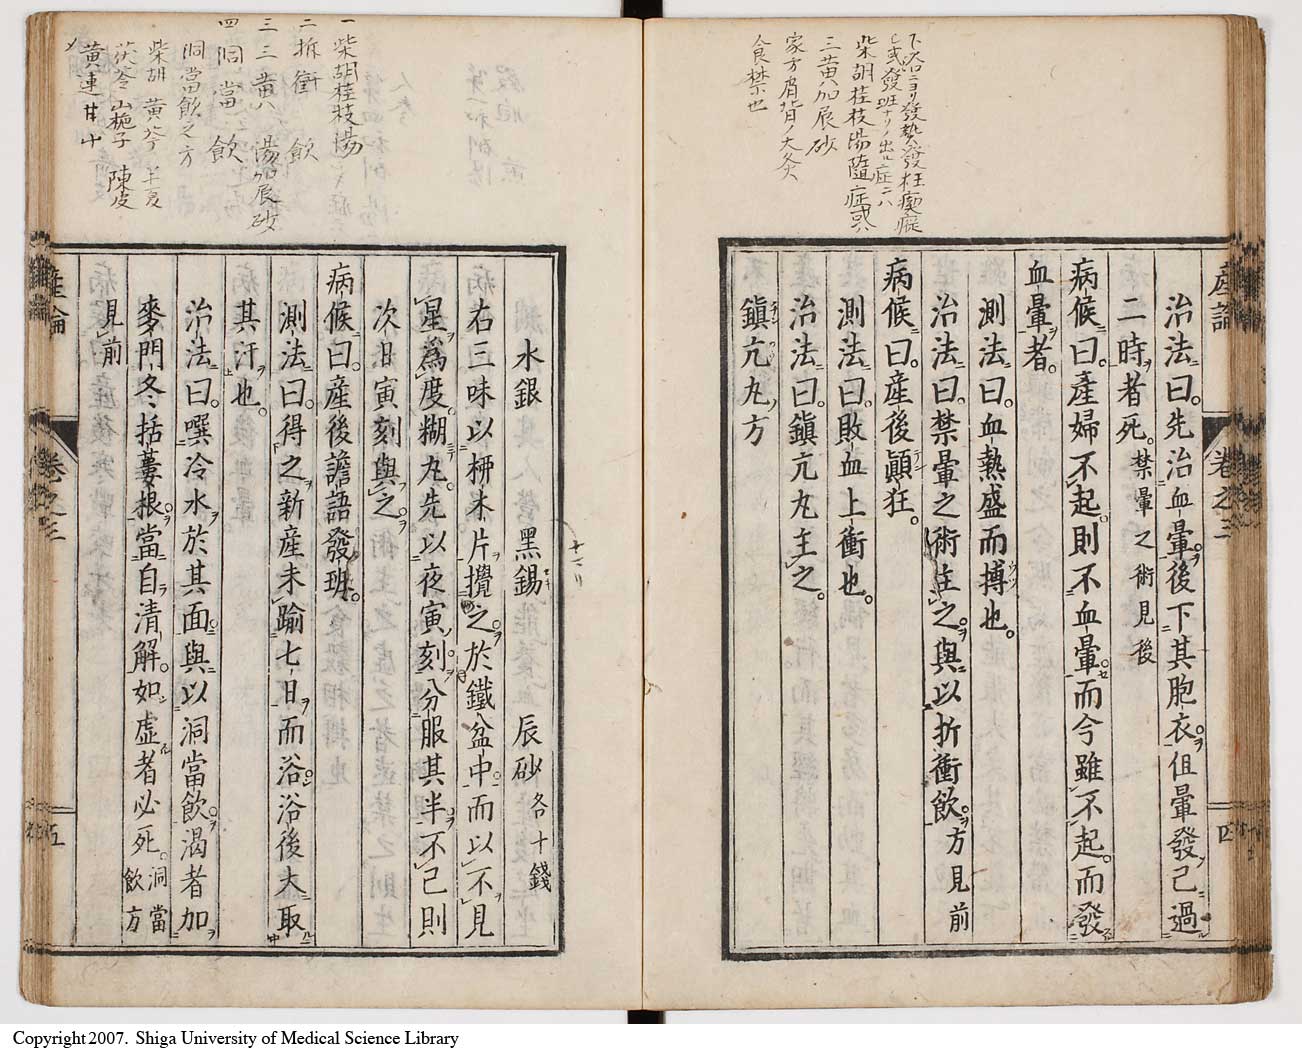 下沿ヨリ發熱發狂瘈瘲
シ或發班ナリノ出ル症ニハ
柴胡桂枝湯隨症或ハ
三黄加辰砂
家方肩背ノ大灸
食禁也
産論
卷之三
四
治法曰。先治血暈。後下其胞衣。但暈發已過
二時者死。禁暈之術見後
病候曰。產婦不起則不血暈。而今雖不起。而發
血暈者。
測法曰。血熱盛而搏也。
治法曰。禁暈之術主之。與以折衝飲。方見前
病候曰。產後顚狂。
測法曰。敗血上衝也。
治法曰。鎭亢丸主之。
鎭亢丸方
一 柴胡桂枝湯
二 折衝飲
三 三黄湯加辰砂
四 洞當飲
洞當飲之方
柴胡 黄芩 半夏
茯苓 山梔子 陳皮
黄連 甘艸
水銀 黑錫 辰砂各十錢
右三味以柳木片攪之。於鐵盆中。而以不見
星爲度。糊丸。先以夜寅刻。分服其半。不已則
次日寅刻與之。
病候曰。產後譫語發班。
測法曰。得之新產未踰七日而浴。浴後大取
其汗也。
治法曰。噀冷水於其面。與以洞當飲。渴者加
麥門冬括蔞根。當自清解。如虛者必死。洞當飲方
見前
産論
卷之三
五
Copyright 2007. Shiga University of Medical Science Library